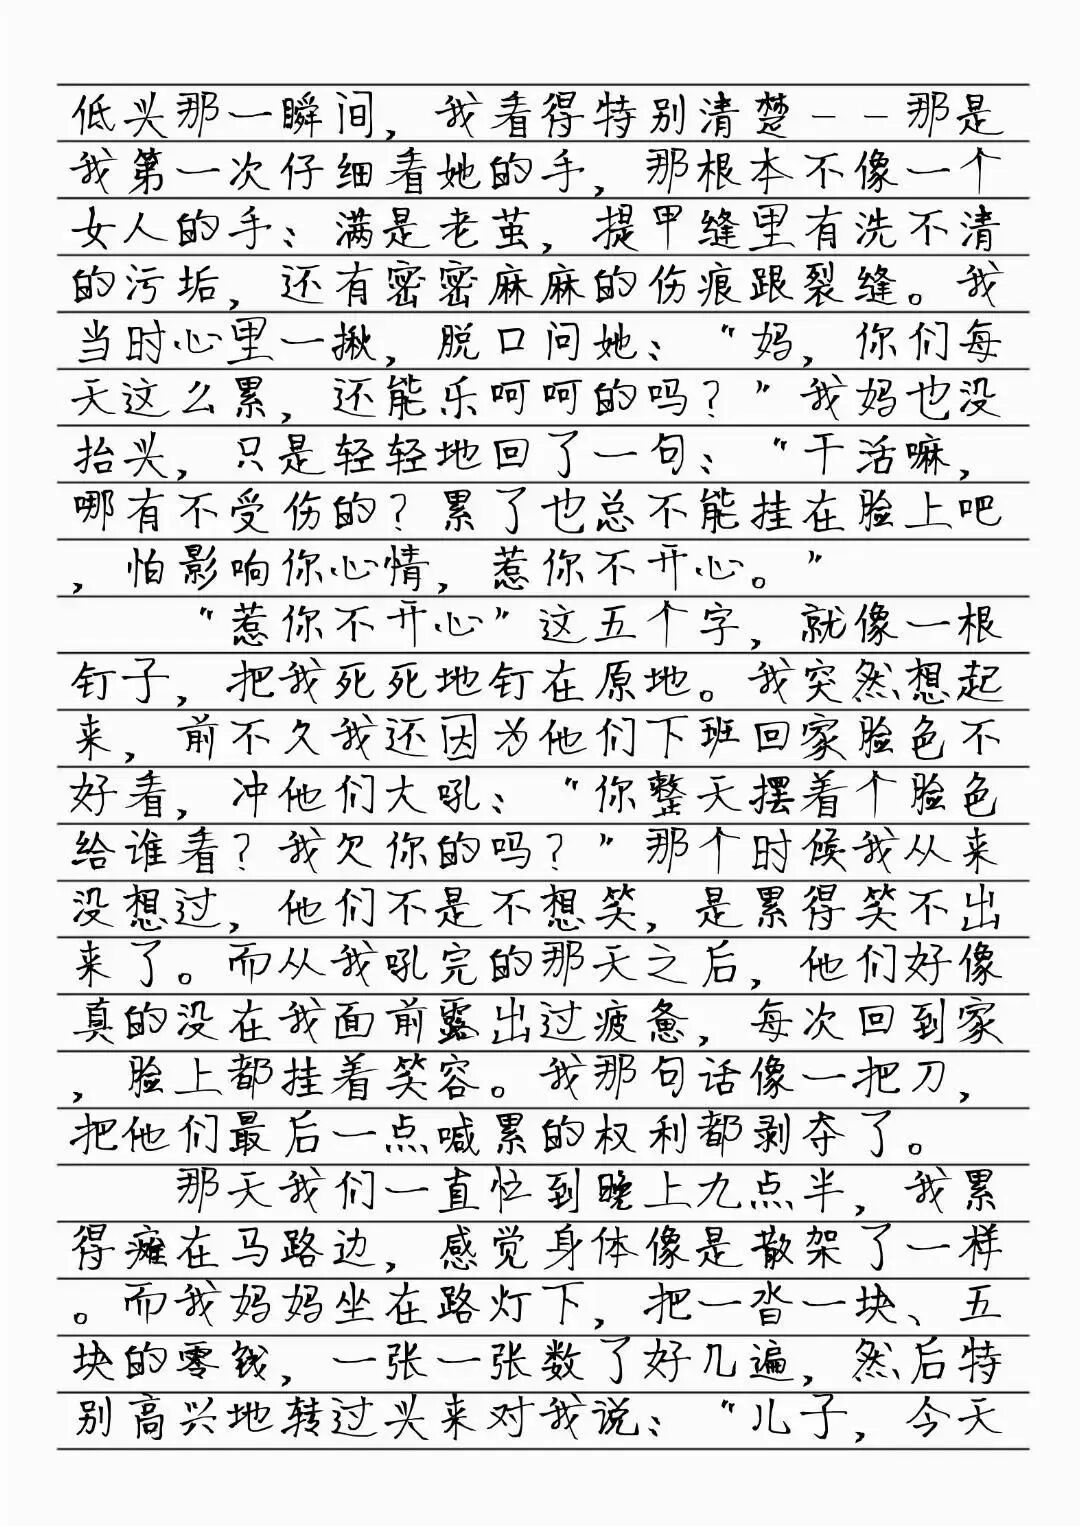 低头那一瞬间，我看得特别清楚－－那是
我第一次仔细看她的手，那根本不像一个
女人的手：满是老茧，提甲缝里有洗不清
的污垢，还有密密麻麻的伤痕跟裂缝。我
当时心里一揪，脱口问她：“妈，你们每
天这么累，还能乐呵呵的吗？”我妈也没
抬头，只是轻轻地回了一句：“干活嘛，
哪有不受伤的？累了也总不能挂在脸上吧
，怕影响你心情，惹你不开心。”
“惹你不开心”这五个字，就像一根
钉子，把我死死地钉在原地。我突然想起
来，前不久我还因为他们下班回家脸色不
好看，冲他们大吼：“你整天摆着个脸色
给谁看？我欠你的吗？”那个时候我从来
没想过，他们不是不想笑，是累得笑不出
来了。而从我吼完的那天之后，他们好像
真的没在我面前露出过疲惫，每次回到家
，脸上都挂着笑容。我那句话像一把刀，
把他们最后一点喊累的权利都剥夺了。
那天我们一直忙到晚上九点半，我累
得瘫在马路边，感觉身体像是散架了一样
。而我妈妈坐在路灯下，把一沓一块、五
块的零钱，一张一张数了好几遍，然后特
别高兴地转过头来对我说：“儿子，今天